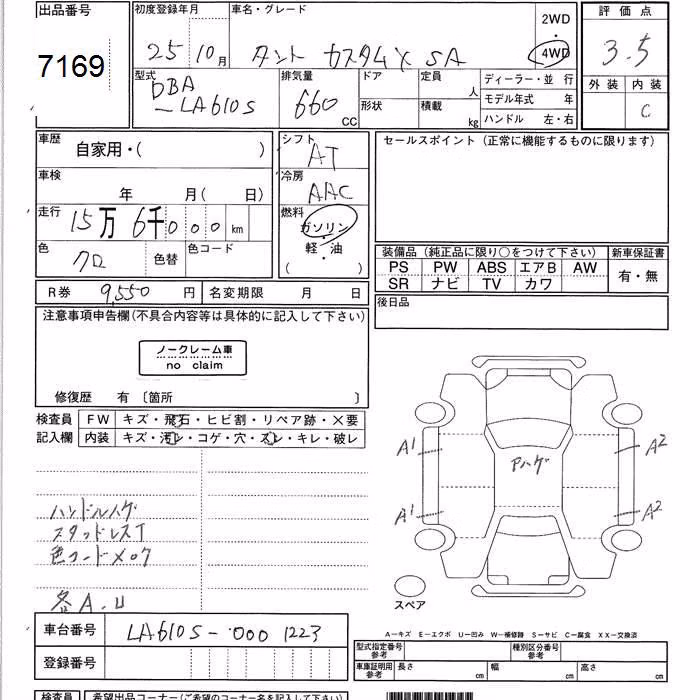 出品番号 初度登録年月 車名・グレード 2WD 評価点
7169 25 10月 タント カスタムX SA 4WD 3.5
型式 排気量 ドア 定員 人 ディーラー・並 行 外装 内装
DBA
-LA610S 660 CC 形状 積載 kg モデル年式 年 C
ハンドル 左・右
車歴 自家用・( ) シフト AT セールスポイント (正常に機能するものに限ります)
車検 年 月(日) 冷房 AAC
走行 15万 6千000km 燃料 ガソリン
・
軽・油
( )
色 クロ 色替 色コード
装備品 (純正品に限り○をつけて下さい) 新車保証書
PS PW ABS エアB AW 有・無
SR ナビ TV カワ
R券 9,550 円 名変期限 月 日 後日品
注意事項申告欄(不具合内容等は具体的に記入して下さい)
ノークレーム車
no claim
修復歴 有 〔箇所 〕
検査員 FW キズ・飛石・ヒビ割・リペア跡・X要
記入欄 内装 キズ・汚レ・コゲ・穴・スレ・キレ・破レ
A1 Aハゲ A2
A1 A2
ハンドルハゲ
スタッドレスT
色コード
各A.U
スペア
車台番号 LA610S-0001223
A-キズ E-エクボ U-凹み W-補修跡 S-サビ C-腐食 XX-交換済
登録番号
型式指定番号 参考 種別区分番号 参考
車庫証明用 参考 長さ cm 幅 cm 高さ cm
検査員 希望出品コーナー(ご希望のコーナー名を記入して下さい)